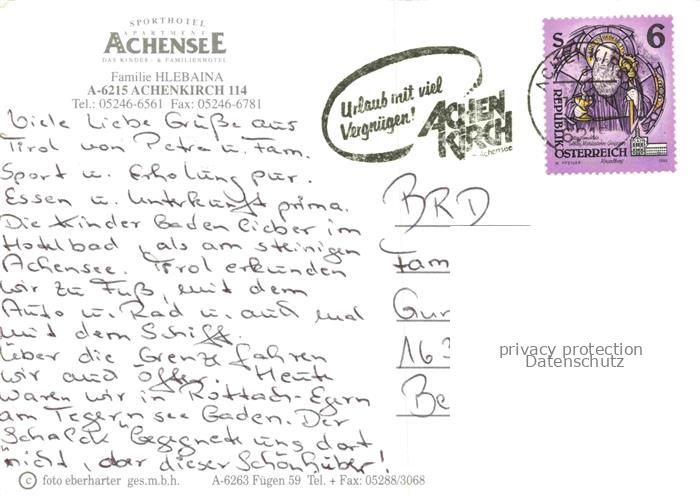 SPORTHOTEL
APARTMENT
ACHENSEE
DAS KINDER- & FAMILIENHOTEL
Familie HLEBAINA
A-6215 ACHENKIRCH 114
Tel.: 05246-6561 Fax: 05246-6781
Viele liebe Grüße aus
Tirol von Petra u. Fam.
Sport u. Erholung pur.
Essen u. Unterkunft prima.
Die Kinder baden lieber im
Hotelbad, als am steinigen
Achensee. Tirol erkunden
wir zu Fuß, mit dem
Auto u. Rad u. auch mal
mit dem Schiff.
Über die Grenze fahren
wir auch öfter. Heute
waren wir in Rottach-Egern
am Tegernsee baden. Der
"Schalck" begegnete uns dort
nicht, aber dieser Schönhuber!
c foto eberharter ges.m.b.h. A-6263 Fügen 59 Tel. + Fax: 05288/3068
Urlaub mit viel
Vergnügen!
ACHEN
KIRCH
am Achensee
S 6
REPUBLIK
ÖSTERREICH
BRD
Fam
Gur
163
Be
privacy protection
Datenschutz